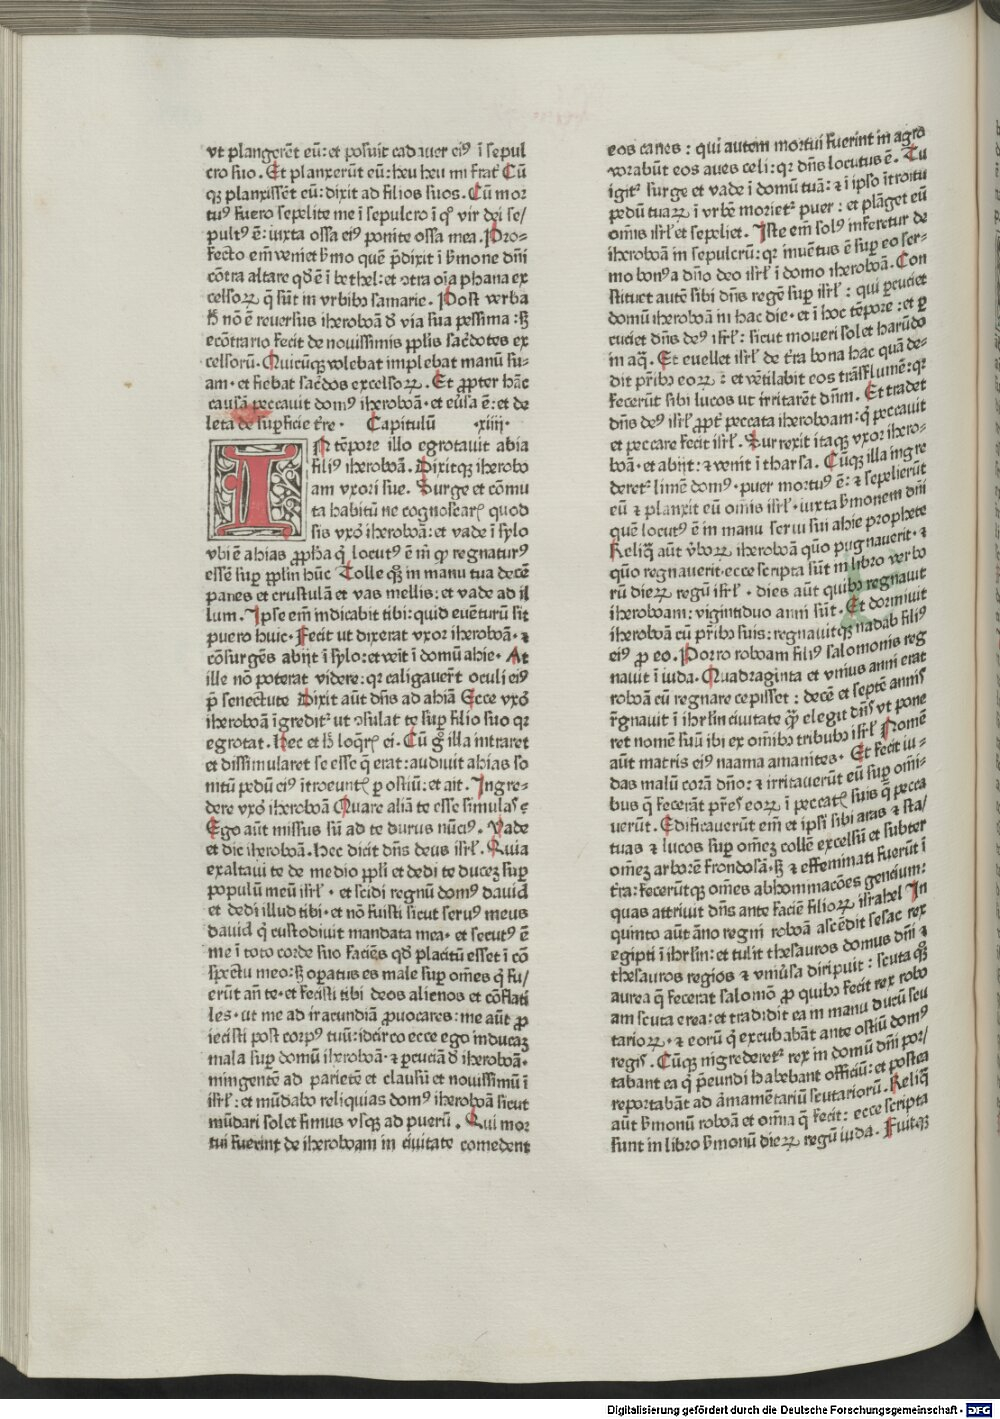 vt plangerēt eū: et posuit cadauer eiꝰ ī sepul
cro suo. Et planxerūt eū: heu heu mi frat̄ Cū
qꝫ planxissēt eū: dixit ad filios suos. Cū mor
tuꝰ fuero sepelite me ī sepulcro ī q° vir dei se/
pultꝰ ē: iuxta ossa eiꝰ ponite ossa mea. Pro-
fecto em̄ veniet ẜmo quē p̄dixit ī ẜmone dn̄i
cōtra altare qd̄ ē ī bethel: et ꝯtra oīa phana ex
celsoꝝ q̄ sūt in vrbibꝰ samarie. Post verba
h̄ nō ē reuersus iheroboā d̄ via sua pessima: sꝫ
ecōtrario fecit de nouissimis ppl̄is sac̄dotes ex
celsorū. Quicūqꝫ volebat implebat manū su-
am · et fiebat sac̄dos excelsoꝝ. Et ꝓpter hāc
causā peccauit domꝰ iheroboā · et eūsa ē: et de
leta de suꝑficie t̄re · Capitulū ·xiiii·
IN tēpore illo egrotauit abia
filiꝰ iheroboā. Dixitqꝫ iherobo
am vxori sue. Surge et cōmu
ta habitū ne cognoscarꝭ quod
sis vxoꝭ iheroboā: et vade ī sylo
vbi ē ahias ꝓpha q̄ locutꝰ ē m̄ qꝭ regnaturꝰ
essē suꝑ ppl̄m hūc Tolle qꝫ in manu tua decē
panes et crustulā et vas mellis: et vade ad il
lum. Ipse em̄ indicabit tibi: quid euētūrū sit
puero huic · Fecit ut dixerat vxor iheroboā · ⁊
cōsurgēs abijt ī sylo: et veīt ī domū ahie · At
ille nō poterat videre: qꝛ caligauer̄t oculi eiꝰ
p̄ senectute Dixit aūt dn̄s ad ahiā Ecce vxoꝭ
iheroboā īgreditꝭ ut ꝯsulat te suꝑ filio suo qꝛ
egrotat. Hec et h̄ loq̄rꝭ ei. Cū g° illa intraret
et dissimularet se esse q̄ erat: audiuit ahias so
nitū pedū eiꝰ ītroeuntꝭ ꝑ ostiū: et ait. Ingre-
dere vxoꝭ iheroboā Quare aliā te esse simulas?
Ego aūt missus sū ad te durus nūciꝰ. Vade
et dic iheroboā. Hec dicit dn̄s deus isrl̄. Quia
exaltaui te de medio ppl̄i et dedi te ducez suꝑ
populū meū isrl̄ · et scidi regnū domꝰ dauid
et dedi illud tibi · et nō fuisti sicut seruꝰ meus
dauid q̄ custodiuit mandata mea · et secutꝰ ē
me ī toto corde suo faciēs qd̄ placitū esset ī cō
spectu meo: sꝫ oꝑatus es male suꝑ om̄es q̄ fu/
erūt an̄ te · et fecisti tibi deos alienos et cōflati
les · ut me ad iracundiā ꝓuocares: me aūt ꝓ
iecisti post corpꝰ tuū: idcirco ecce ego inducaz
mala suꝑ domū iheroboā · ⁊ ꝑcuciā d̄ iheroboā ·
mingentē ad parietē et clausū et nouissimū ī
isrl̄: et mūdabo reliquias domꝰ iheroboā sicut
mūdari solet fimus vsqꝫ ad puerū. Qui mor
tui fuerint de iheroboam in ciuitate comedent
eos canes: qui autem mortui fuerint in agro
vorabūt eos aues celi: qꝛ dn̄s locutus ē. Tu
igitꝭ surge et vade ī domū tuā: ⁊ ī ipso ītroitu
pedū tuaꝝ ī vrbē morietꝭ puer: et plāget eū
om̄is isrl̄ et sepeliet. Iste em̄ solꝰ inferetur de
iheroboā in sepulcrū: qꝛ inuētus ē suꝑ eo ser-
mo bonꝰ a dn̄o deo isrl̄ ī domo iheroboā. Con
stituet autē sibi dn̄s regē suꝑ isrl̄: qui ꝑcuciet
domū iheroboā in hac die · et ī hoc tēpore: et ꝑ
cuciet dn̄s deꝰ isrl̄: sicut moueri solet harūdo
in aq̄. Et euellet isrl̄ de t̄ra bona hac quā de-
dit pr̄ibꝰ eoꝝ: et vētilabit eos trās flumē: qꝛ
fecerūt sibi lucos ut irritarēt dn̄m. Et tradet
dn̄s deꝰ isrl̄ ꝓpt̄ peccata iheroboam: q̄ peccauit
et peccare fecit isrl̄. Surrexit itaqꝫ vxor ihero-
boā · et abijt: ⁊ venit ī tharsa. Cūqꝫ illa ingre
deretꝭ limē domꝰ · puer mortuꝰ ē: ⁊ sepelierūt
eū ⁊ planxit eū om̄is isrl̄ · iuxta ẜmonem dn̄i
quē locutꝰ ē in manu serui sui ahie prophete
Reliq̄ aūt v̄boꝝ iheroboā quō pugnauerit · ⁊
quō regnauerit · ecce scripta sūt in libro verbo
rū dieꝝ regū isrl̄ · dies aūt quibꝰ regnauit
iheroboam: vigintiduo anni sūt. Et dormiuit
iheroboā cū pr̄ibꝰ suis: regnauitqꝫ nadab filiꝰ
eiꝰ ꝓ eo. Porro roboam filiꝰ salomonis reg
nauit ī iuda. Quadraginta et vnius anni erat
roboā cū regnare cepisset: decē et septē annis
r̄gnauit ī ihrl̄m ciuitate quā elegit dn̄s vt pone
ret nomē suū ibi ex om̄ibꝰ tribubꝰ isrl̄ Nomē
aūt matris eiꝰ naama amanites · Et fecit iu-
das malū corā dn̄o: ⁊ irritauerūt eū suꝑ om̄i-
bus q̄ fecerāt pr̄es eoꝝ ī peccatꝭ suis q̄ pecca
uerūt. Edificauerūt em̄ et ipsi sibi aras ⁊ sta/
tuas ⁊ lucos suꝑ om̄ez collē excelsū et subter
om̄ez arborē frondosā · sꝫ ⁊ effeminati fuerūt ī
t̄ra: fecerūtqꝫ om̄es abhominacōes gencium:
quas attriuit dn̄s ante faciē filioꝝ israhel In
quinto aūt āno regni roboā ascēdit sesac rex
egipti ī ihrl̄m: et tulit thesauros domus dn̄i ⁊
thesauros regios ⁊ vniūsa diripuit: scuta qꝫ
aurea q̄ fecerat salomō ꝓ quibꝰ fecit rex robo
am scuta erea: et tradidit ea in manu ducū scu
tarioꝝ · ⁊ eorū q̄ excubabāt ante ostiū domꝰ
regis. Cūqꝫ īngrederetꝭ rex in domū dn̄i por/
tabant ea q̄ p̄eundi habebant officiū: et postea
reportabāt ad armamētariū scutariorū. Reliq̄
aūt ẜmonū roboā et om̄ia q̄ fecit: ecce scripta
sunt in libro ẜmonū dieꝝ regū iuda. Fuitqꝫ
Digitalisierung gefördert durch die Deutsche Forschungsgemeinschaft - DFG